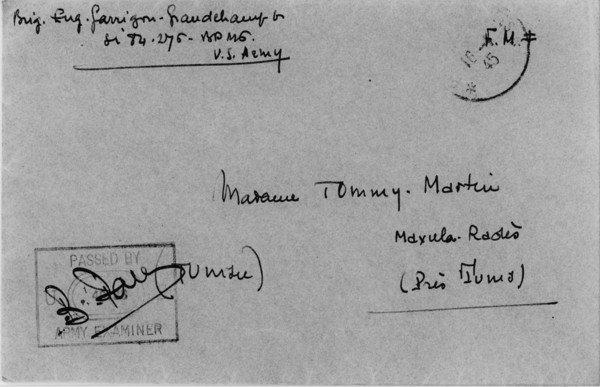 Brig. Eug. Garrigou-Grandchamp
54.276 - BPMS.
U.S. Army
F.M.
16
45
Madame Tommy-Martin
Maxula-Radès
(Près Tunis)
(Tunisie)
PASSED BY
ARMY EXAMINER